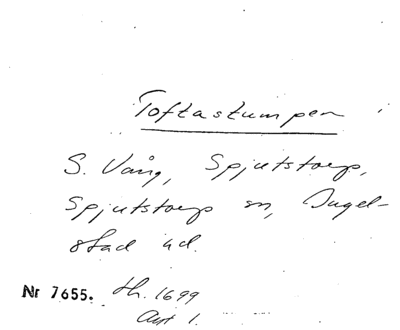 Toftastumpen
S. Vång, Spjutstorp,
Spjutstorp sn, Ingel-
stad hd.
Nr 7655. th. 1699
Art 1.